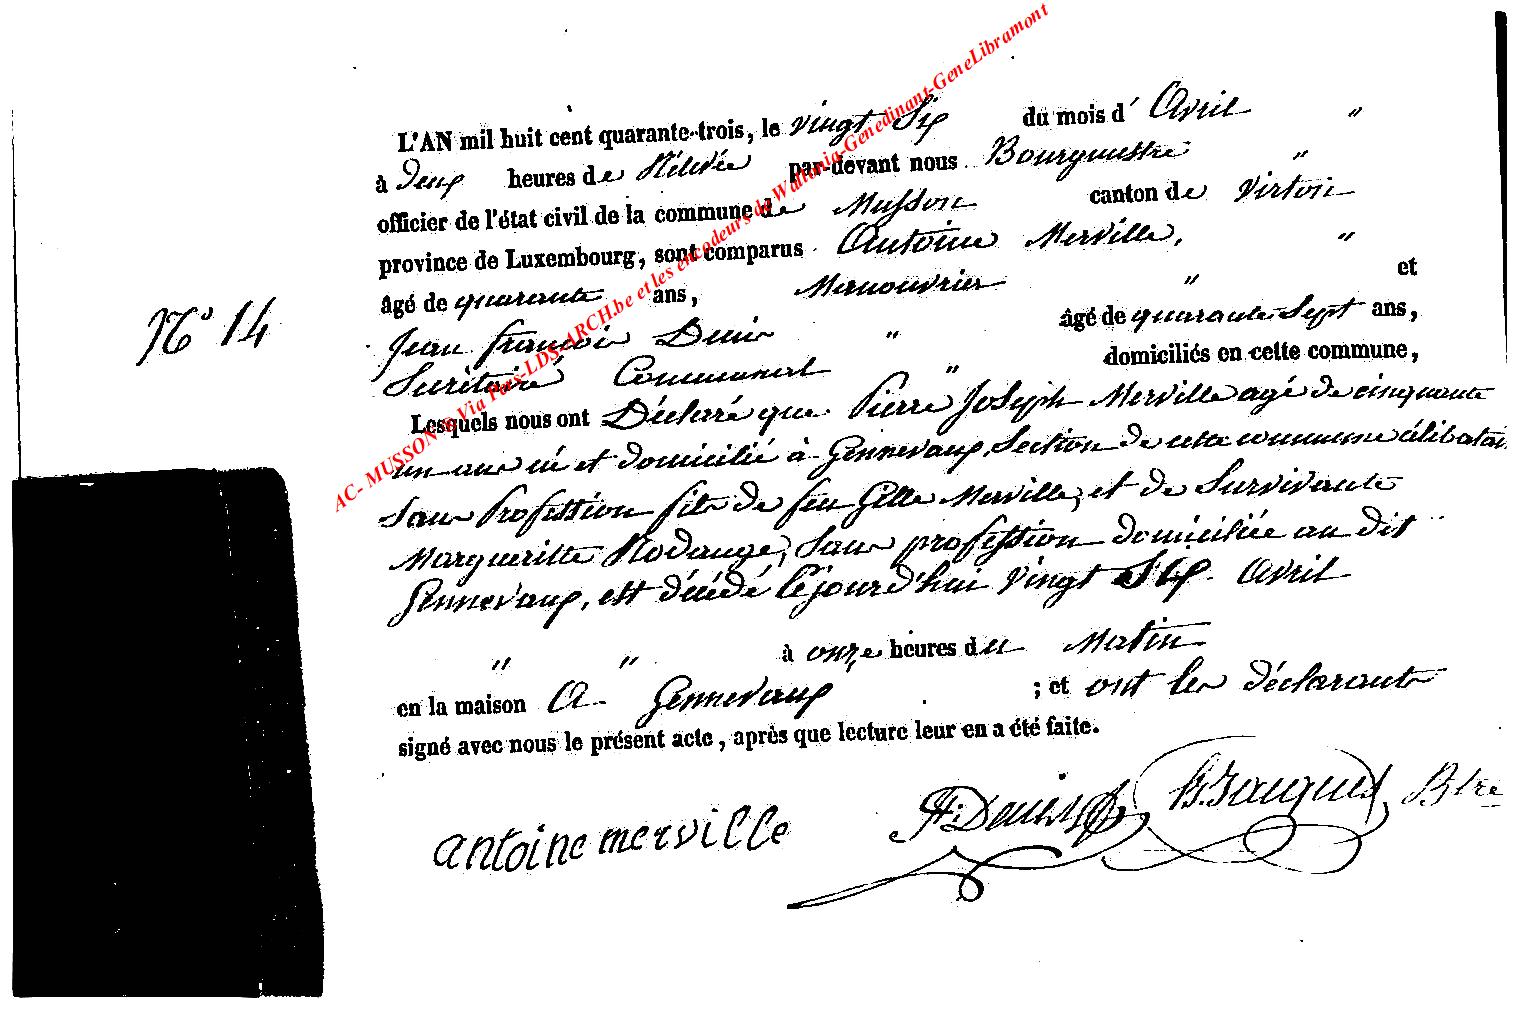 L'AN mil huit cent quarante-trois, le vingt Six du mois d' Avril "
à Deux heures de Rélevée par-devant nous Bourguestre "
officier de l'état civil de la commune de Musson canton de Virton
province de Luxembourg, sont comparus Antoine Merville, "
âgé de quarante ans, Mernouvrier " et
N° 14
Jean françois Denis " âgé de quarante Sept ans,
Secrétaire Communal " domiciliés en cette commune,
Lesquels nous ont Déclaré que Pierre Joseph Merville agé de cinquante
un ans né et domicilié à Gennevaux, Section de cette commune célibatai
sans Profession fils de feu Gille Merville, et de Survivante
Margueritte Rodange, sans profession domiciliée au dit
Gennevaux, est décédé Cejourd'hui vingt Six Avril
" " à onze heures du Matin
en la maison A Gennevaux ; et ont les déclarants
signé avec nous le présent acte, après que lecture leur en a été faite.
antoine merville Denis Jacques Btre
AC- MUSSON © Via Pays-LDS-ARCH.be et les encodeurs de Wallonia-Genedinant-GeneLibramont